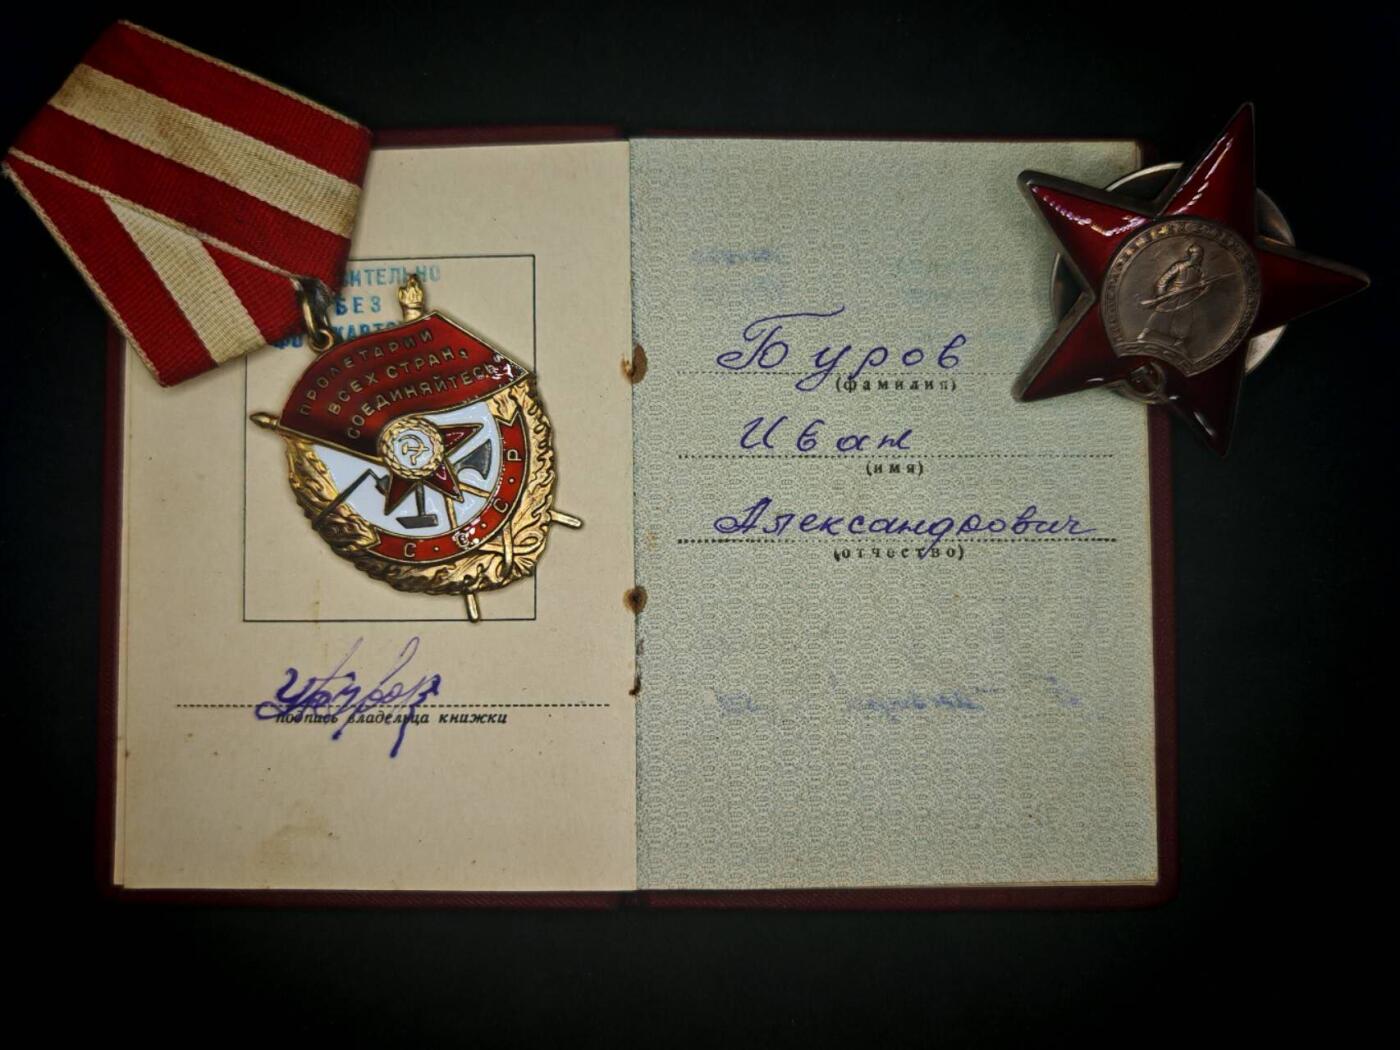 БЕЗ
ПРОЛЕТАРИИ
ВСЕХ СТРАН,
СОЕДИНЯЙТЕСЬ!
С · С · С · Р
подпись владельца книжки
Буров
(фамилия)
Иван
(имя)
Александрович
(отчество)